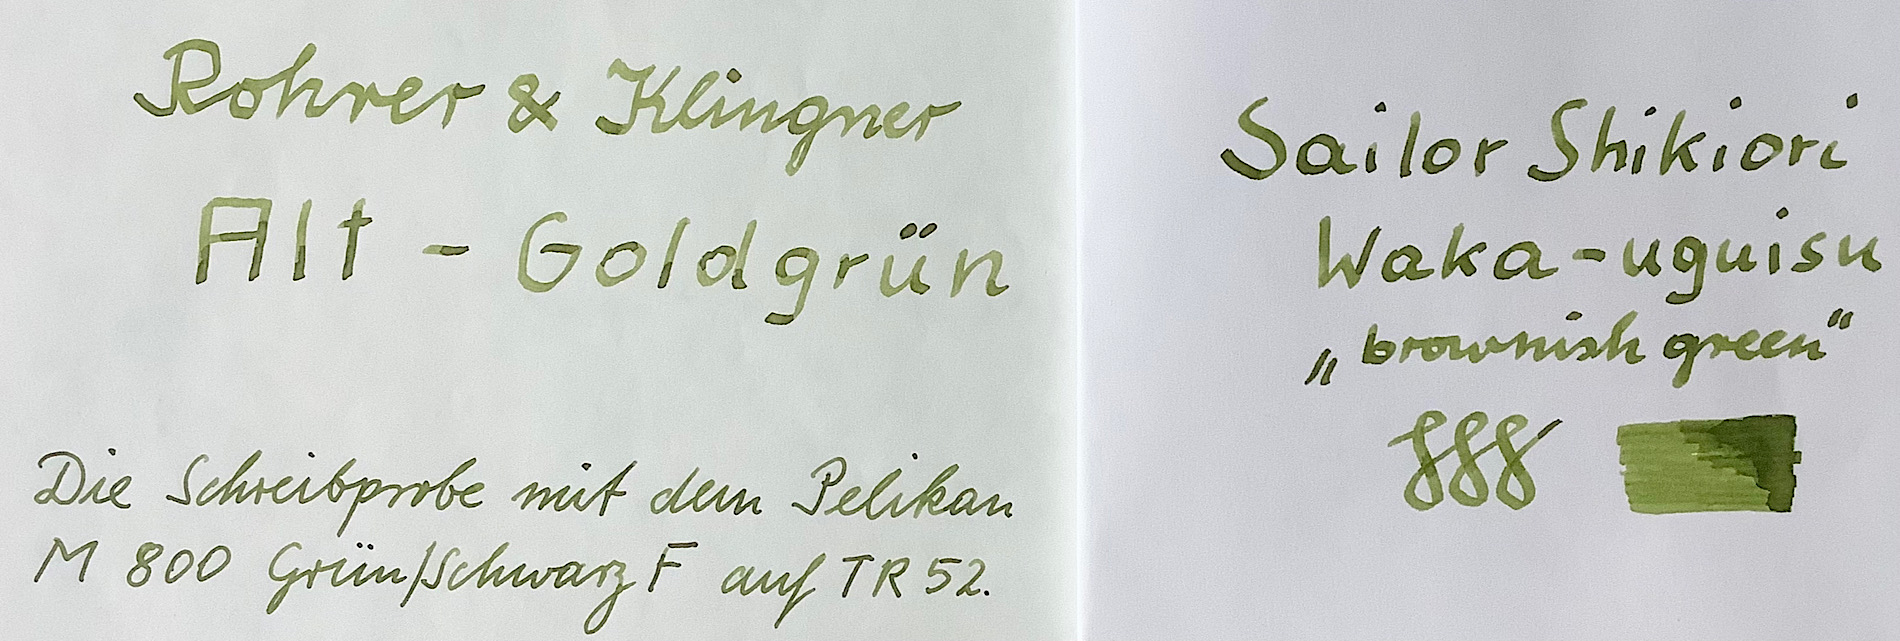 Rohrer & Klingner
Alt - Goldgrün
Die Schreibprobe mit dem Pelikan
M 800 Grün/Schwarz F auf TR 52.
Sailor Shikiori
Waka-uguisu
„brownish green“